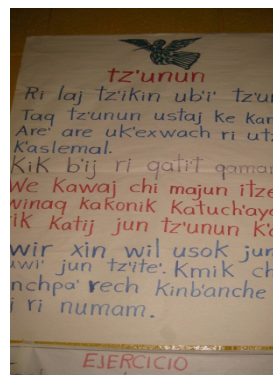 tz'unun
Ri laj tz'ikin ub'i' tz'u
Taq tz'unun ustaj ke kan
Are' are uk'exwach ri utz
k'aslemal.
Kik b'ij ri qatit qamam
We kawaj chi majun itze
winaq kakonik katuch'ay
ik katij jun tz'unun k'a
wir xin wil usok jun
uwi' jun tz'ite'. Kmik ch
nchpa' rech kinb'anche
i ri numam.
EJERCICIO